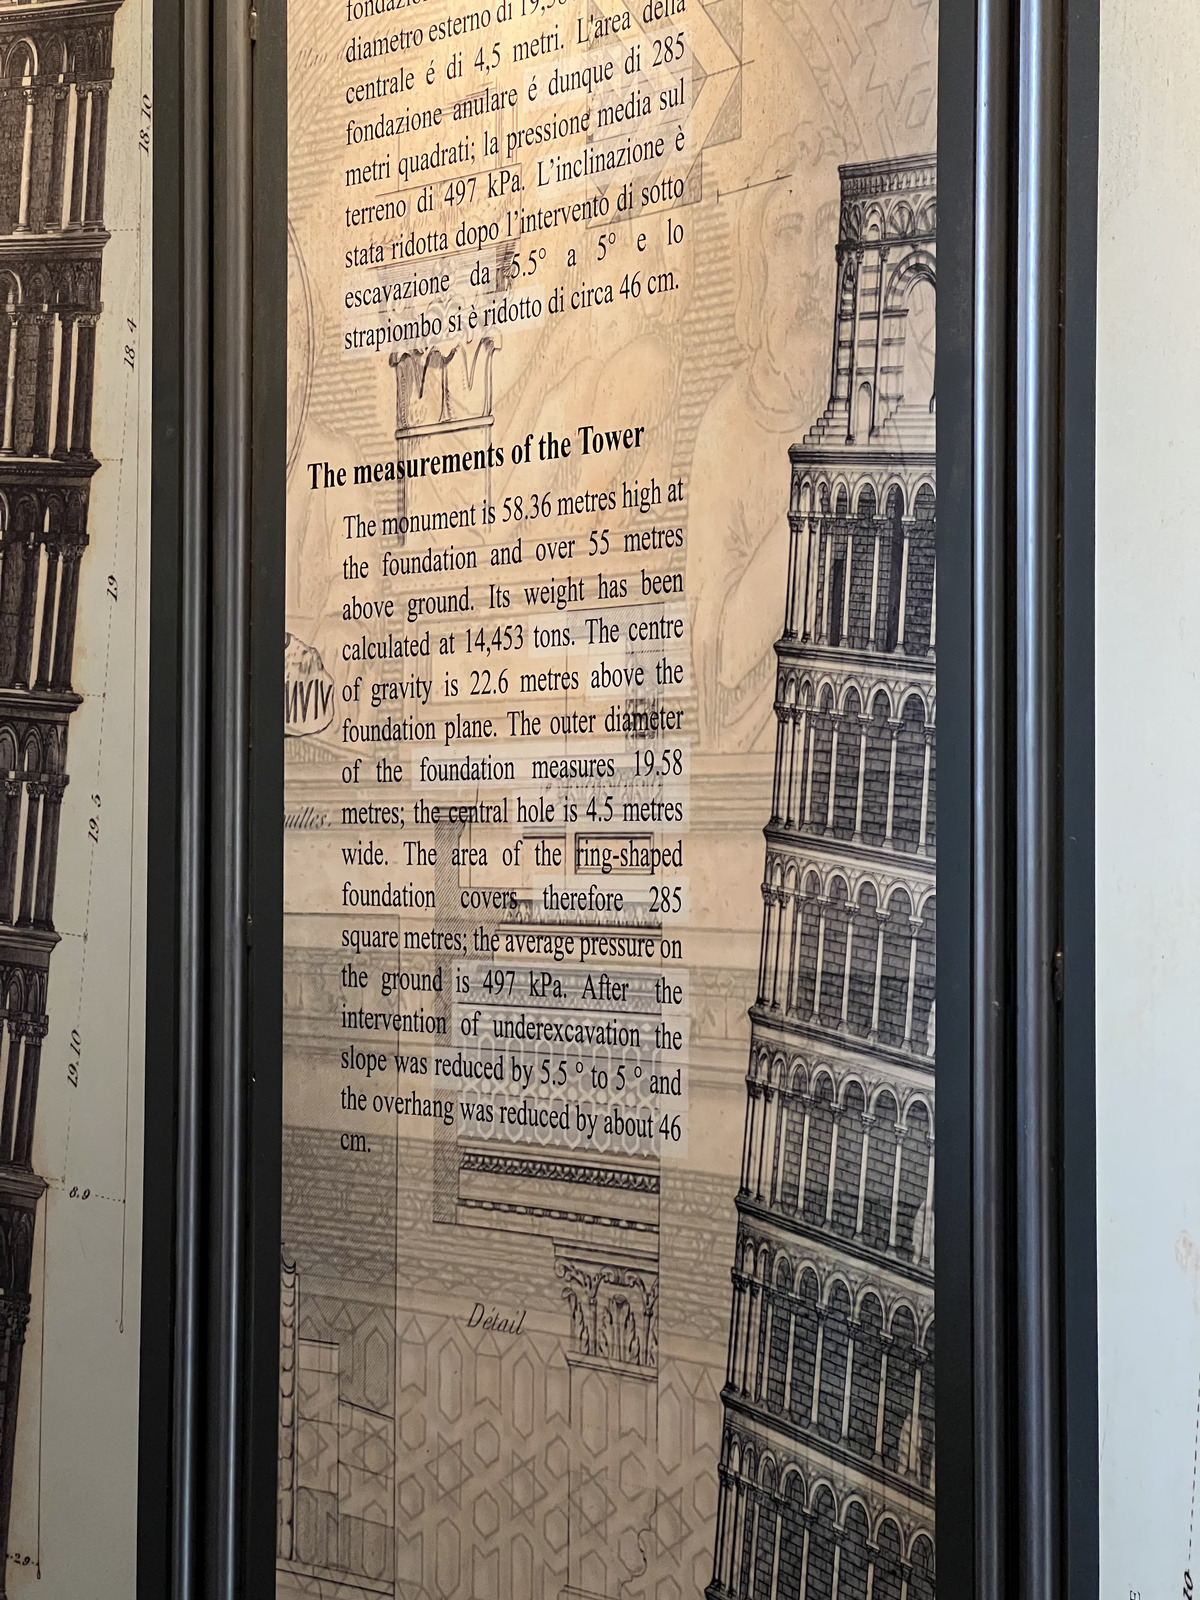 diametro esterno di 19,58
centrale é di 4,5 metri. L'area della
fondazione anulare é dunque di 285
metri quadrati; la pressione media sul
terreno di 497 kPa. L'inclinazione è
stata ridotta dopo l'intervento di sotto
escavazione da 5.5° a 5° e lo
strapiombo si è ridotto di circa 46 cm.
The measurements of the Tower
The monument is 58.36 metres high at
the foundation and over 55 metres
above ground. Its weight has been
calculated at 14,453 tons. The centre
of gravity is 22.6 metres above the
foundation plane. The outer diameter
of the foundation measures 19.58
metres; the central hole is 4.5 metres
wide. The area of the ring-shaped
foundation covers therefore 285
square metres; the average pressure on
the ground is 497 kPa. After the
intervention of underexcavation the
slope was reduced by 5.5 ° to 5 ° and
the overhang was reduced by about 46
cm.
Détail
18.10
18.4
19
19.5
19.10
8.9